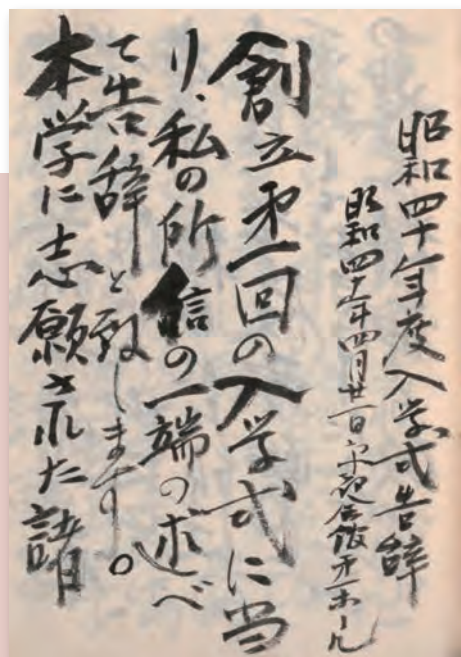 昭和四十年度入学式告辞
昭和四十年四月廿一日京都会館第一ホール
創立第一回の入学式に当
り、私の所信の一端の述べ
て告辞と致します。
本学に志願された諸